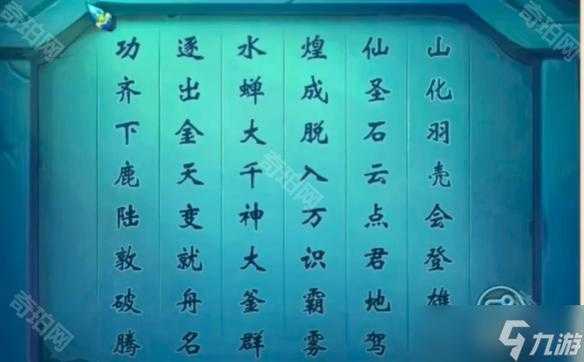 功 逐 水 煌 仙 山
齐 出 蝉 成 圣 化
下 金 大 脱 石 羽
鹿 天 千 入 云 壳
陆 变 神 万 点 会
敦 就 大 识 君 登
破 舟 釜 霸 地 雄
腾 名 群 雾 驾
奇珀网
奇珀网
奇珀网
奇珀网
奇珀网
九游